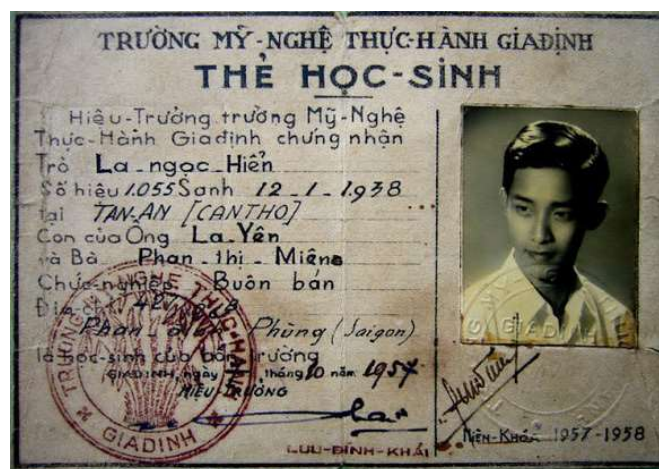 TRƯỜNG MỸ-NGHỆ THỰC-HÀNH GIAĐỊNH
THẺ HỌC-SINH
Hiệu-Trưởng trường Mỹ-Nghệ
Thực-Hành Giađịnh chứng nhận
Trò La-ngọc-Hiển
Số hiệu 1.055 Sanh 12-1-1938
tại TAN-AN [CANTHO]
Con của Ông La-Yên
và Bà Phan-thị-Miêng
Chức-nghiệp Buôn bán
Địa chỉ
Phan đình Phùng (Saigon)
là học-sinh của bản trường
GIAĐỊNH, ngày tháng 10 năm 1957
HIỆU-TRƯỞNG
LƯU-ĐÌNH-KHẢI
Niên-Khóa 1957-1958
TRƯỜNG MỸ NGHỆ THỰC-HÀNH
GIAĐINH
GIAĐINH